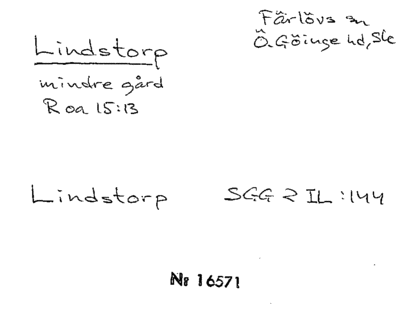 Lindstorp
mindre gård
R oa 15:13
Färlövs sn
Ö. Göinge hd, Sk
Lindstorp SGG 2 IL :144
Nr 16571